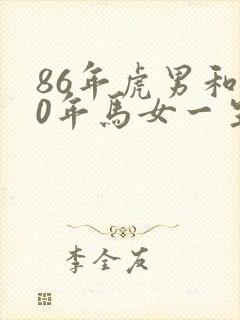 86年虎男和
0年馬女一
李全友